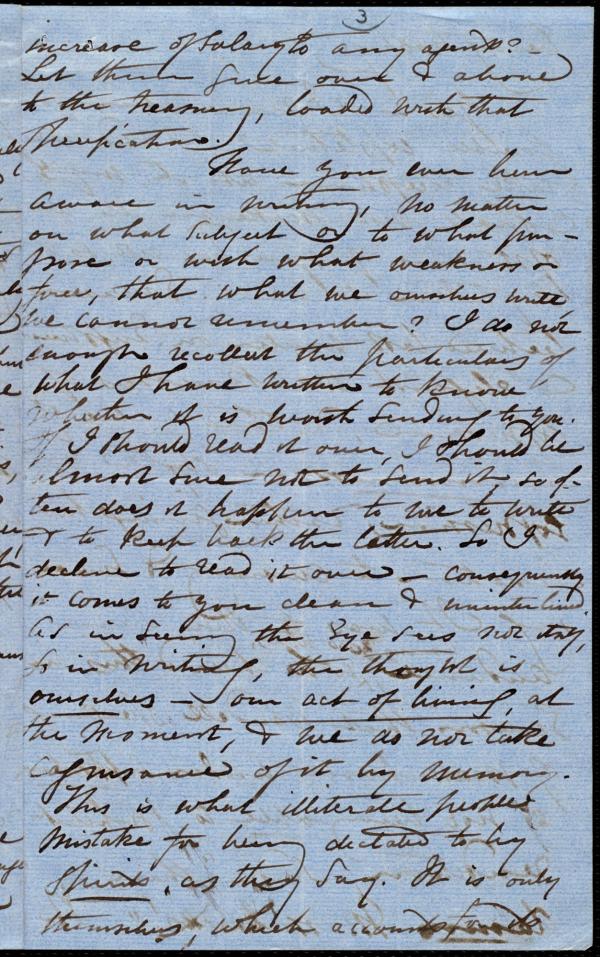 3
increase of salary to any agents?
Let them give over & above
to the treasury, loaded with that
specification.
Have you ever been
aware in writing, no matter
on what subject or to what pur-
pose or with what weakness or
force, that what we ourselves write
we cannot remember? I do not
enough recollect the particulars of
what I have written to know
whether it is worth sending to you.
If I should read it over, I should be
almost sure not to send it, so of-
ten does it happen to me to write
& to keep back the letter. So I
decline to read it over – consequently
it comes to you clean & uninterlined.
As in seeing the Eye sees not itself,
so in writing, the thought is
ourselves – our act of living, at
the moment, & we do not take
cognisance of it by memory.
This is what illiterate people
mistake for being dictated to by
Spirits, as they say. It is only
themselves, which accounts for the